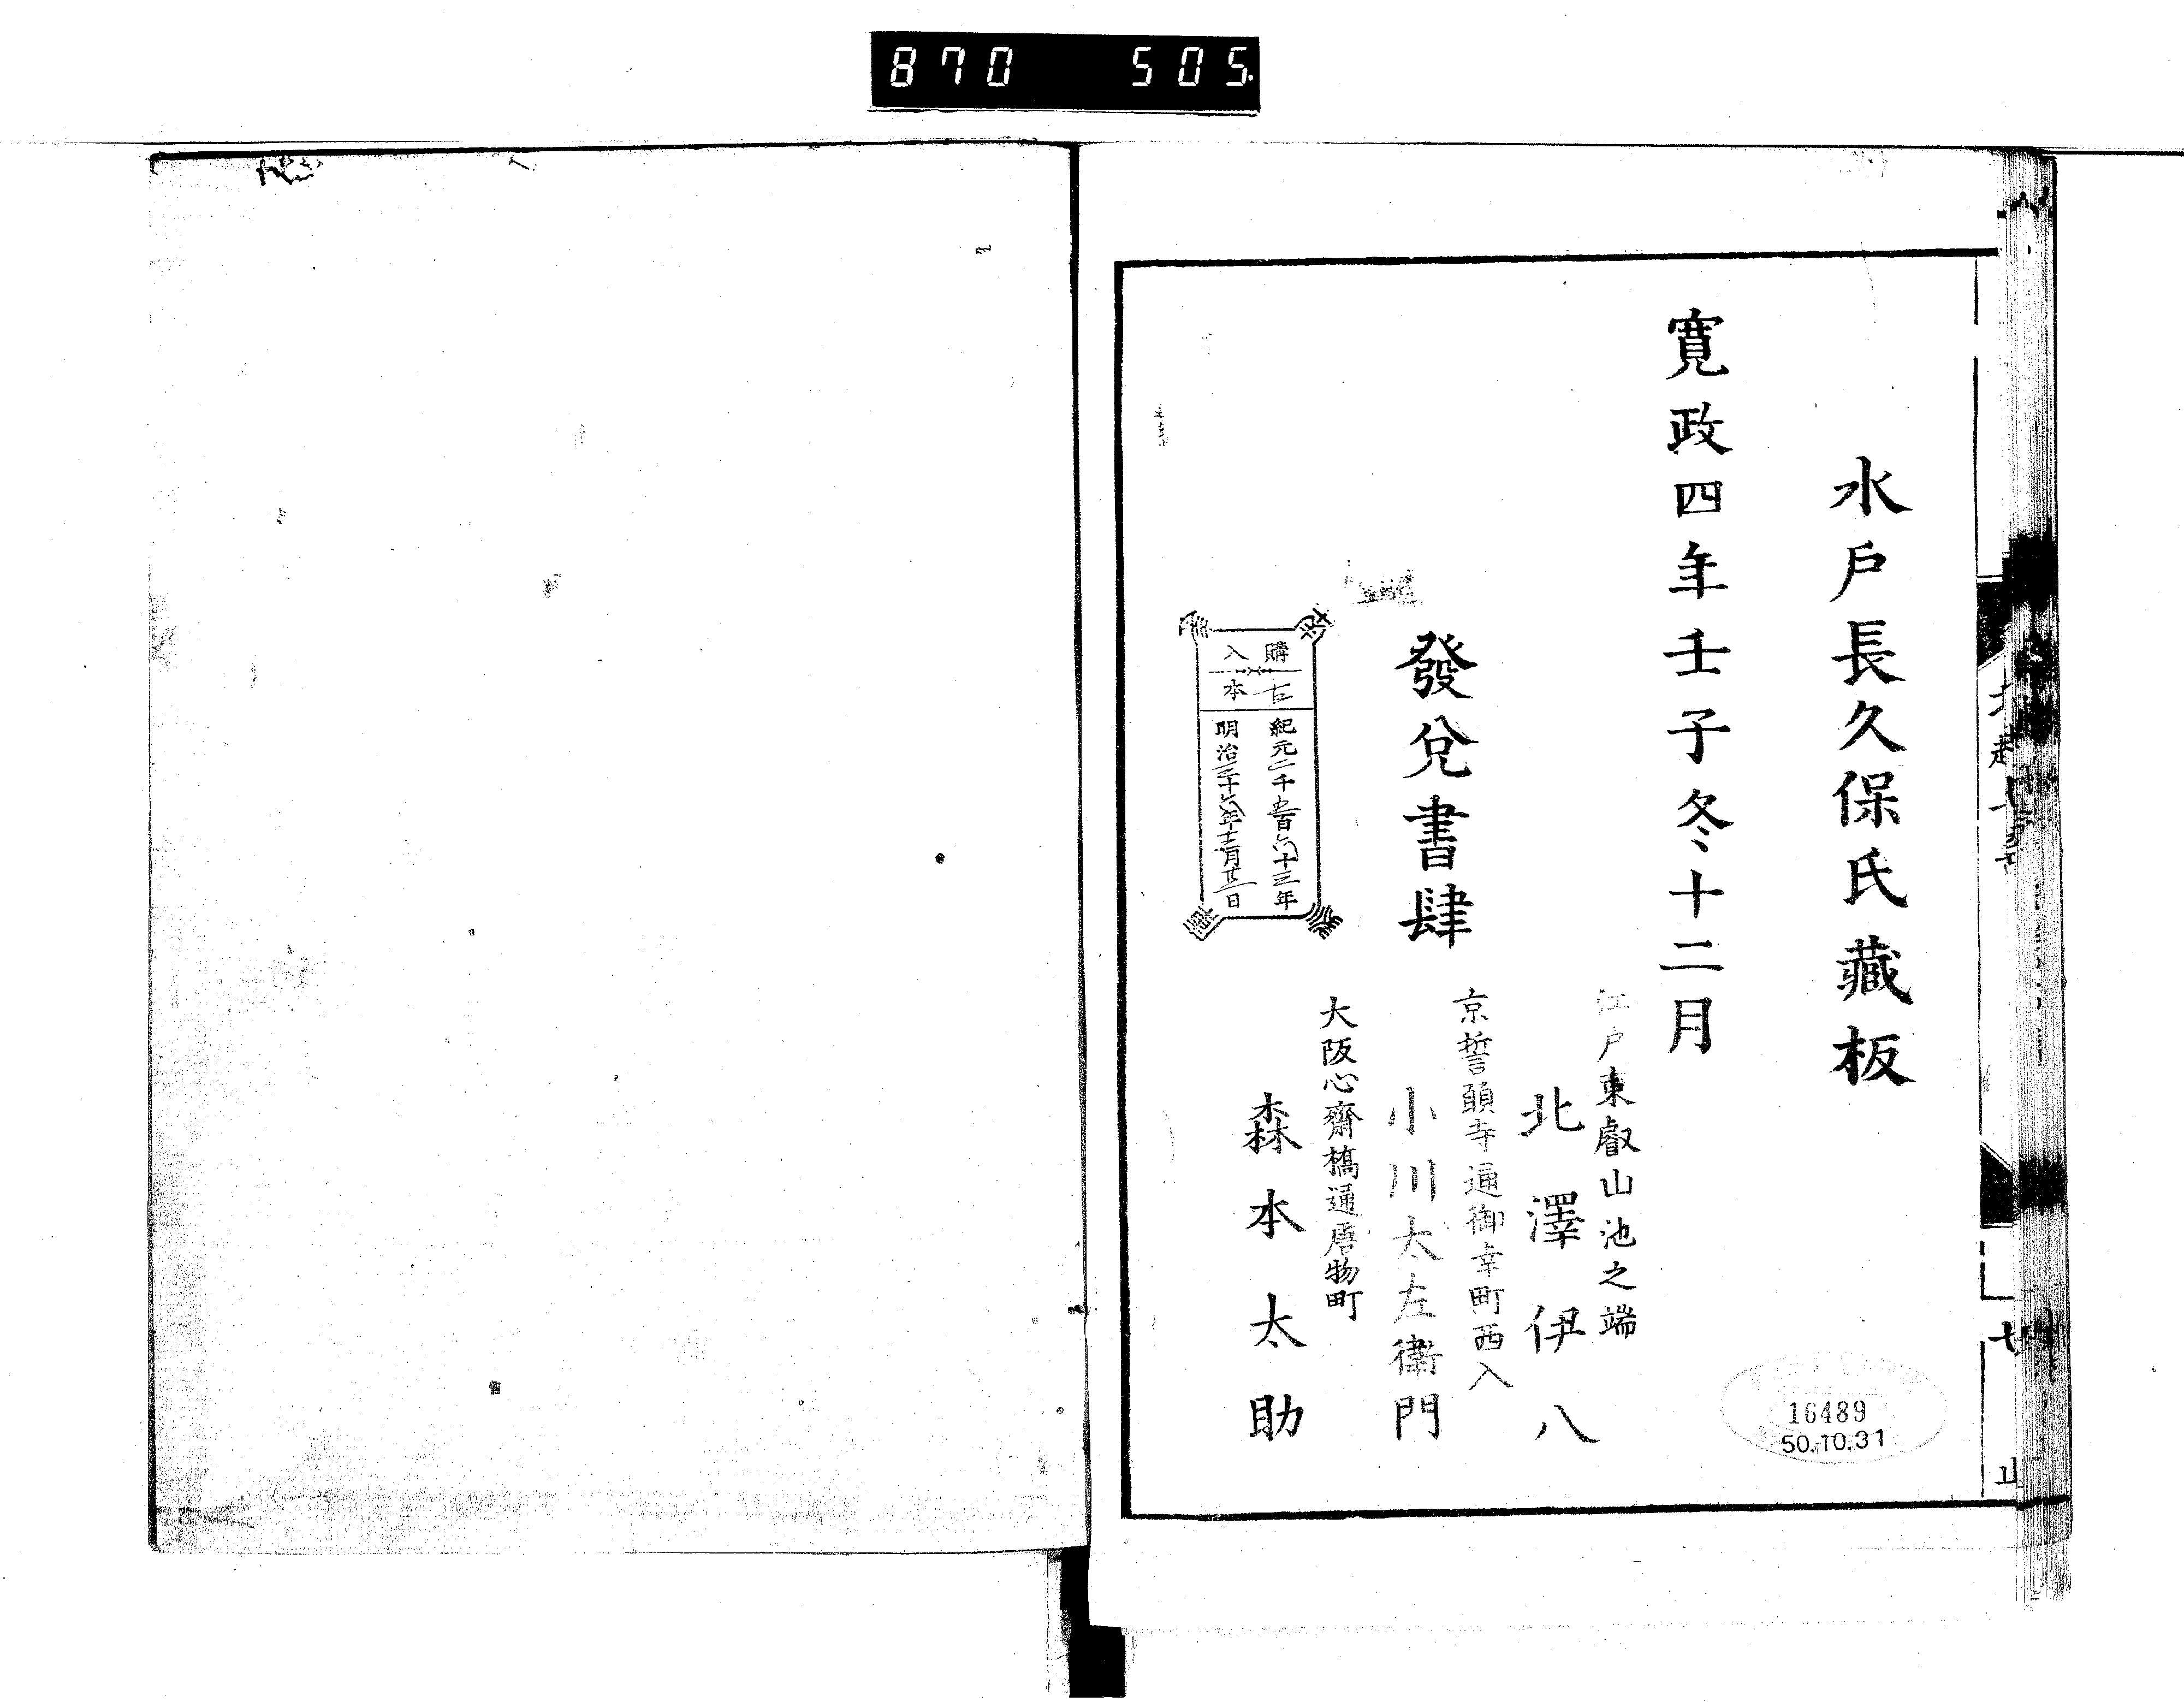 870 505.
水戶長久保氏藏板
寬政四年壬子冬十二月
江戶東叡山池之端
北澤伊八
京誓願寺通御幸町西入
小川太左衛門
發兌書肆
大阪心齋橋通唐物町
森本太助
購入
古本
紀元二千五百六十三年
明治三十六年十二月廿二日
16489
50.10.31